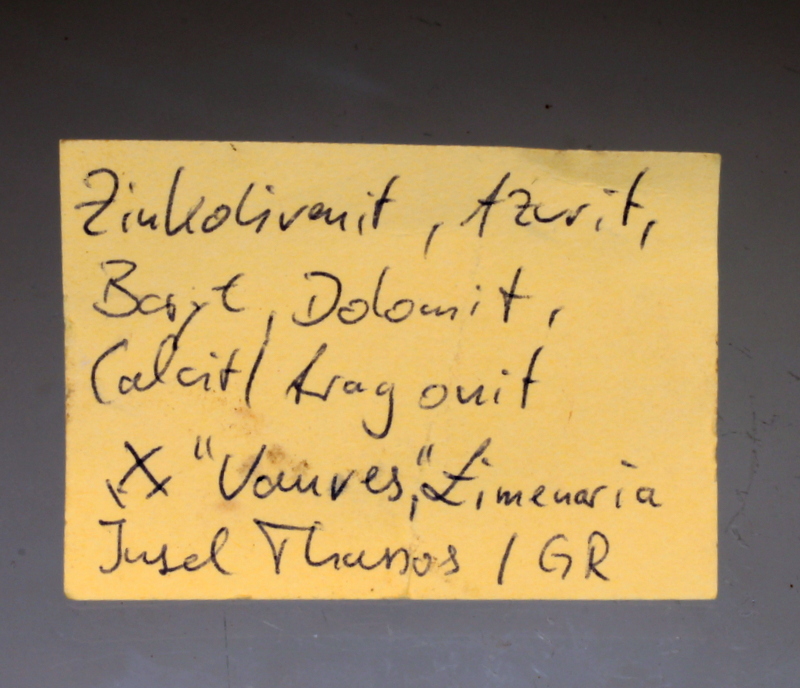 Zinkolivenit, Azurit,
Baryt, Dolomit,
Calcit/Aragonit
"Vouves", Limenaria
Insel Thassos / GR